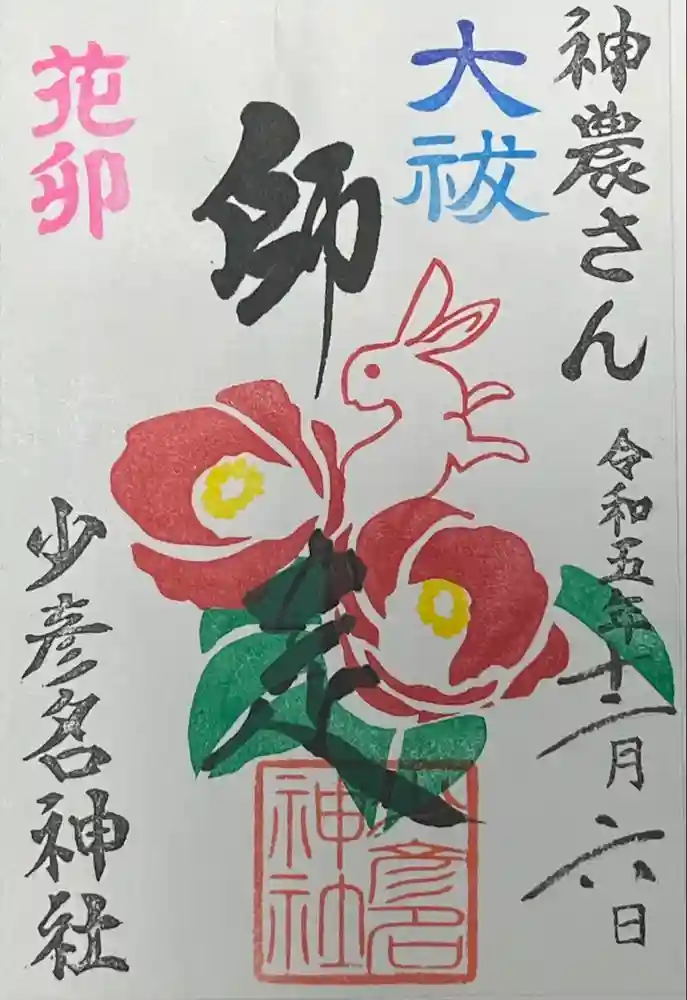 神農さん
令和五年十二月六日
大祓
師走
花卯
少彦名神社
少彦名
神社